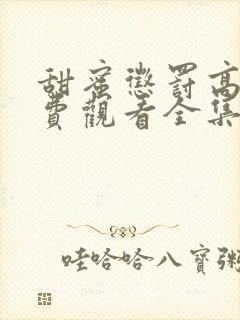 甜蜜懲罰高
費觀看全集
哇哈哈八寶粥